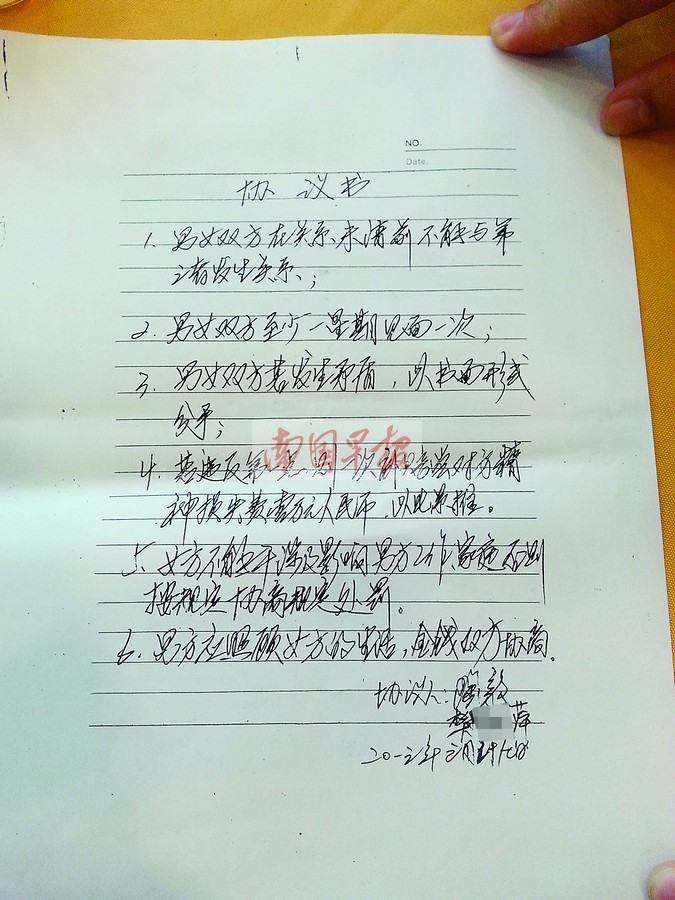 NO.
Date.
协议书
1. 男女双方在关系未清前不能与第
三者发生关系;
2. 男女双方至少一星期见面一次;
3. 男女双方若发生矛盾,以书面形式
分手;
南国早报
4. 若违反第一点,则一次赔偿对方精
神损失费壹万元人民币,以此类推。
5. 女方不能干涉及影响男方工作、家庭否则
按规定协商规定处罚。
6. 男方应照顾女方的生活,金钱双方协商。
协议人:
萍